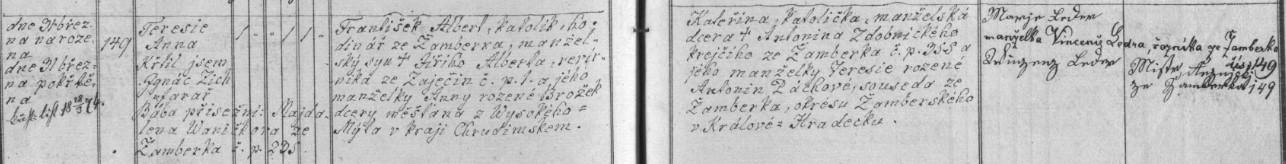 dne 31 břez-
na naroze-
na
dne 31 břez-
na pokřtě-
na
149
Teresie
Anna
Křtil jsem
Ignác Zich
farář
Bába přísežní: Majda-
lena Waníčkova ze
Žamberka č. p. 235.
František Albert, katolík, ho-
dinář ze Žamberka, manžel-
ský syn † Jiřího Alberta, revír-
níka ze Zaječin č. p. 1. a jeho
manželky Anny rozené Brožek
dcery měšťana z Wysokého-
Mýta v kraji Chrudimskem.
Kateřina, katolička, manželská
dcera † Antonína Zdobnického
krejčího ze Žamberka č. p. 355 a
jeho manželky Teresie rozené
Antonín Žáčkové, souseda ze
Žamberka, okresu Žamberského
v Králové-Hradecku.
Marie Leder
manželka Vincence Ledra, řezníka ze Žamberka
Winzenz Leder
čís. 149
Mistr řeznický
ze Žamberka 149